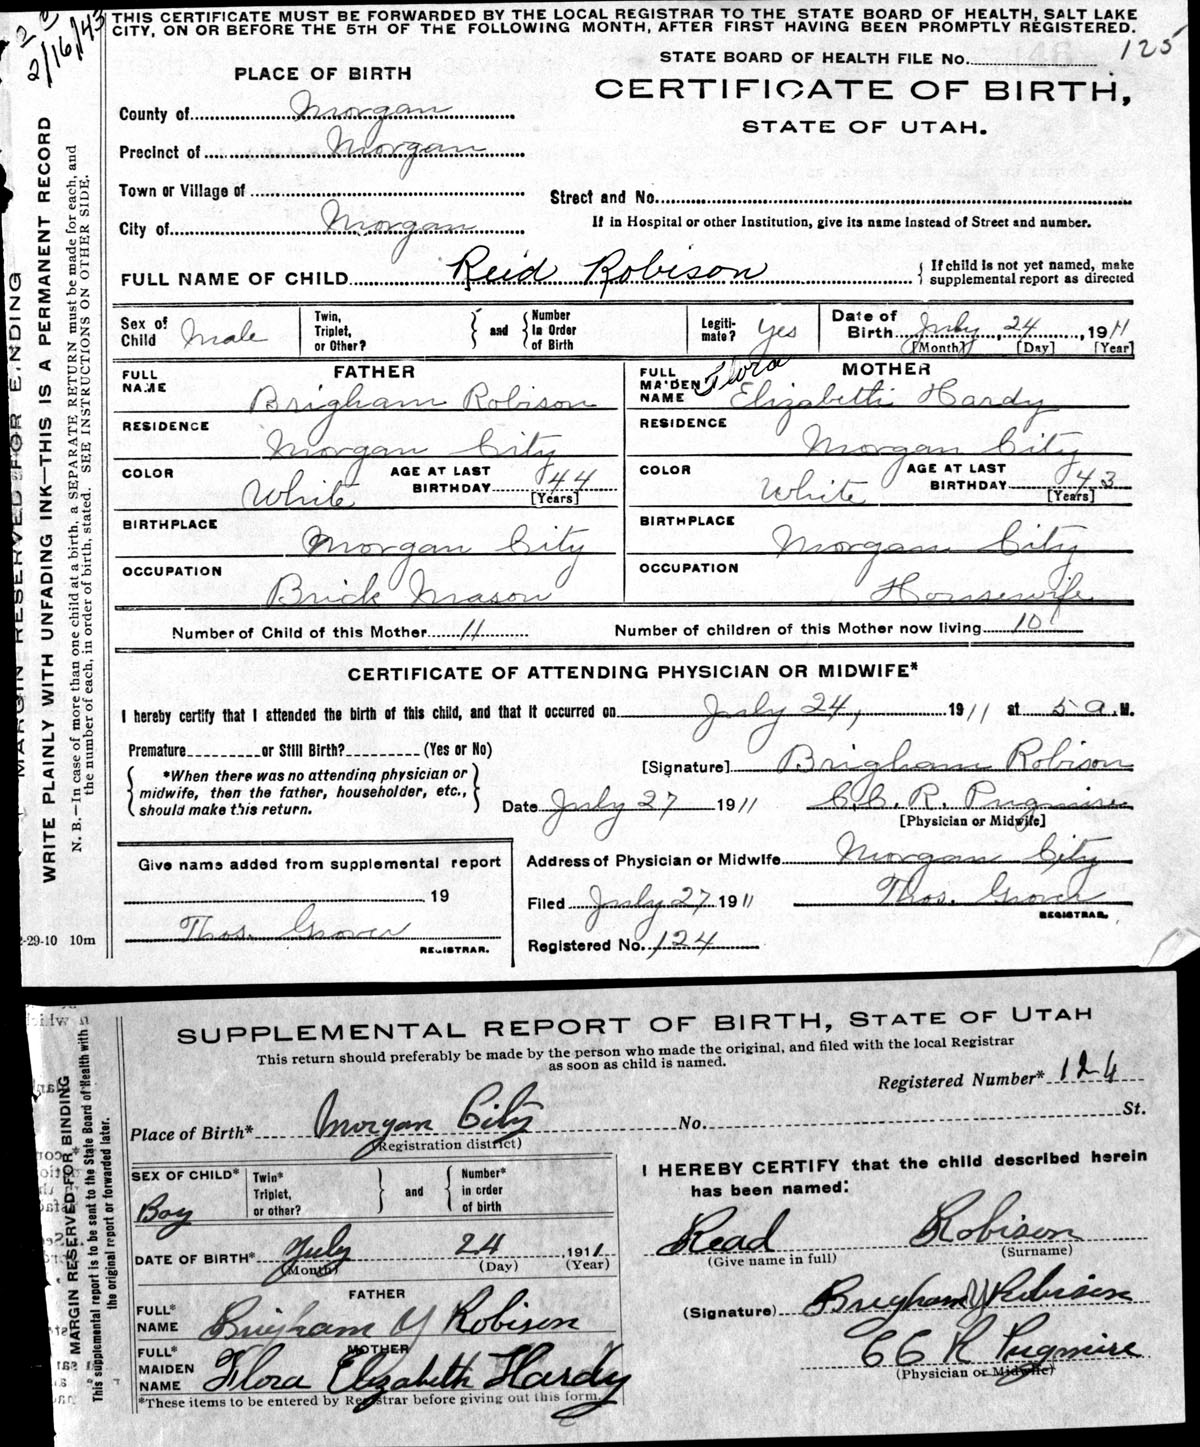 2/16/43
THIS CERTIFICATE MUST BE FORWARDED BY THE LOCAL REGISTRAR TO THE STATE BOARD OF HEALTH, SALT LAKE
CITY, ON OR BEFORE THE 5TH OF THE FOLLOWING MONTH, AFTER FIRST HAVING BEEN PROMPTLY REGISTERED.
125
STATE BOARD OF HEALTH FILE No.
PLACE OF BIRTH
CERTIFICATE OF BIRTH,
STATE OF UTAH.
County of Morgan
Precinct of Morgan
Town or Village of
Street and No.
City of Morgan
If in Hospital or other Institution, give its name instead of Street and number.
FULL NAME OF CHILD Reid Robison
If child is not yet named, make
supplemental report as directed
Sex of Child Male
Twin, Triplet, or Other?
and
Number in Order of Birth
Legiti-mate? Yes
Date of Birth July 24, 1911
[Month] [Day] [Year]
FATHER
FULL NAME Brigham Robison
RESIDENCE Morgan City
COLOR White
AGE AT LAST BIRTHDAY 44
[Years]
BIRTHPLACE Morgan City
OCCUPATION Brick Mason
MOTHER
FULL MAIDEN NAME Flora Elizabeth Hardy
RESIDENCE Morgan City
COLOR White
AGE AT LAST BIRTHDAY 43
[Years]
BIRTHPLACE Morgan City
OCCUPATION Housewife
Number of Child of this Mother 11
Number of children of this Mother now living 10
CERTIFICATE OF ATTENDING PHYSICIAN OR MIDWIFE*
I hereby certify that I attended the birth of this child, and that it occurred on July 24, 1911 at 5 a.M.
Premature or Still Birth? (Yes or No)
*When there was no attending physician or
midwife, then the father, householder, etc.,
should make this return.
[Signature] Brigham Robison
Date July 27 1911 C.C. R. Pugmire
[Physician or Midwife]
Give name added from supplemental report
19
Thos. Grover
REGISTRAR.
Address of Physician or Midwife Morgan City
Filed July 27 1911 Thos. Grover
REGISTRAR.
Registered No. 124
MARGIN RESERVED FOR BINDING
WRITE PLAINLY WITH UNFADING INK—THIS IS A PERMANENT RECORD
N. B.—In case of more than one child at a birth, a SEPARATE RETURN must be made for each, and
the number of each, in order of birth, stated. SEE INSTRUCTIONS ON OTHER SIDE.
-29-10 10m
SUPPLEMENTAL REPORT OF BIRTH, STATE OF UTAH
This return should preferably be made by the person who made the original, and filed with the local Registrar
as soon as child is named.
Registered Number* 124
Place of Birth* Morgan City No. St.
(Registration district)
SEX OF CHILD* Boy
Twin* Triplet, or other?
and
Number* in order of birth
DATE OF BIRTH* July 24, 1911
(Month) (Day) (Year)
FATHER
FULL* NAME Brigham Y Robison
MOTHER
FULL* MAIDEN NAME Flora Elizabeth Hardy
*These items to be entered by Registrar before giving out this form.
I HEREBY CERTIFY that the child described herein
has been named:
Read Robison
(Give name in full) (Surname)
(Signature) Brigham Y Robison
CC R Pugmire
(Physician or Midwife)
MARGIN RESERVED FOR BINDING
This supplemental report is to be sent to the State Board of Health with
the original report or forwarded later.